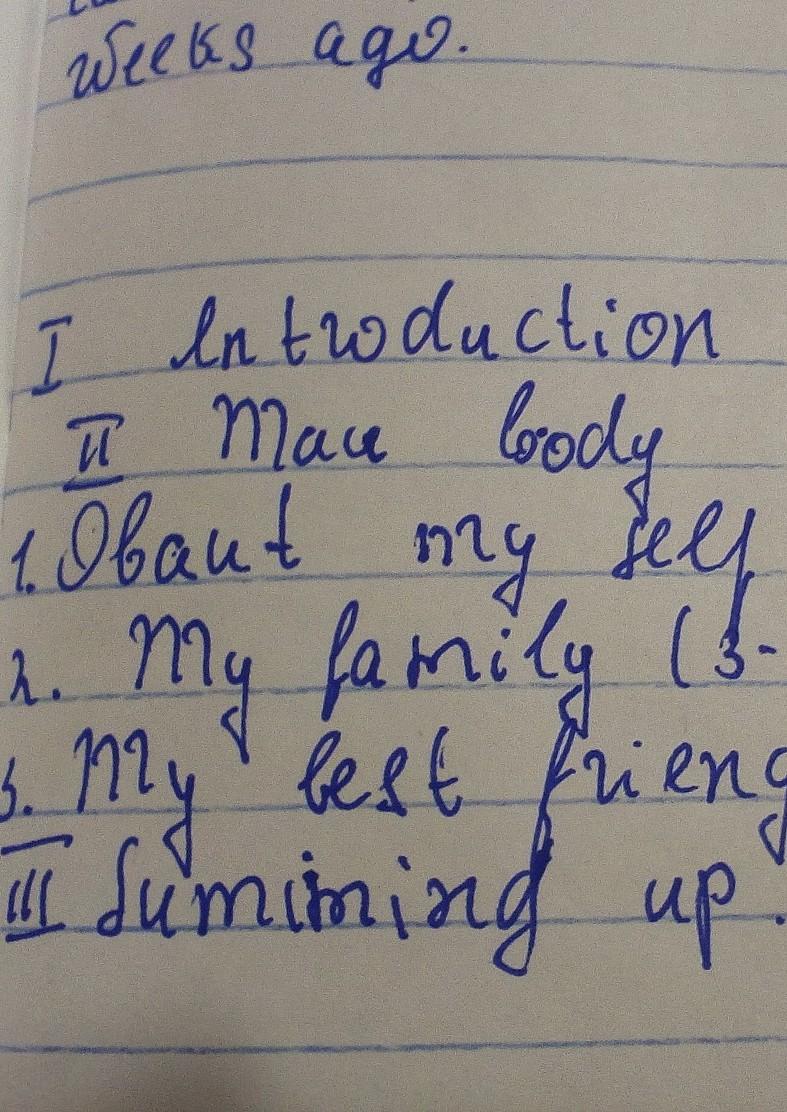 weeks ago.
I Introduction
II Mau body
1. Obaut my self
2. My family (3-
3. My best frieng
III Sumiming up.